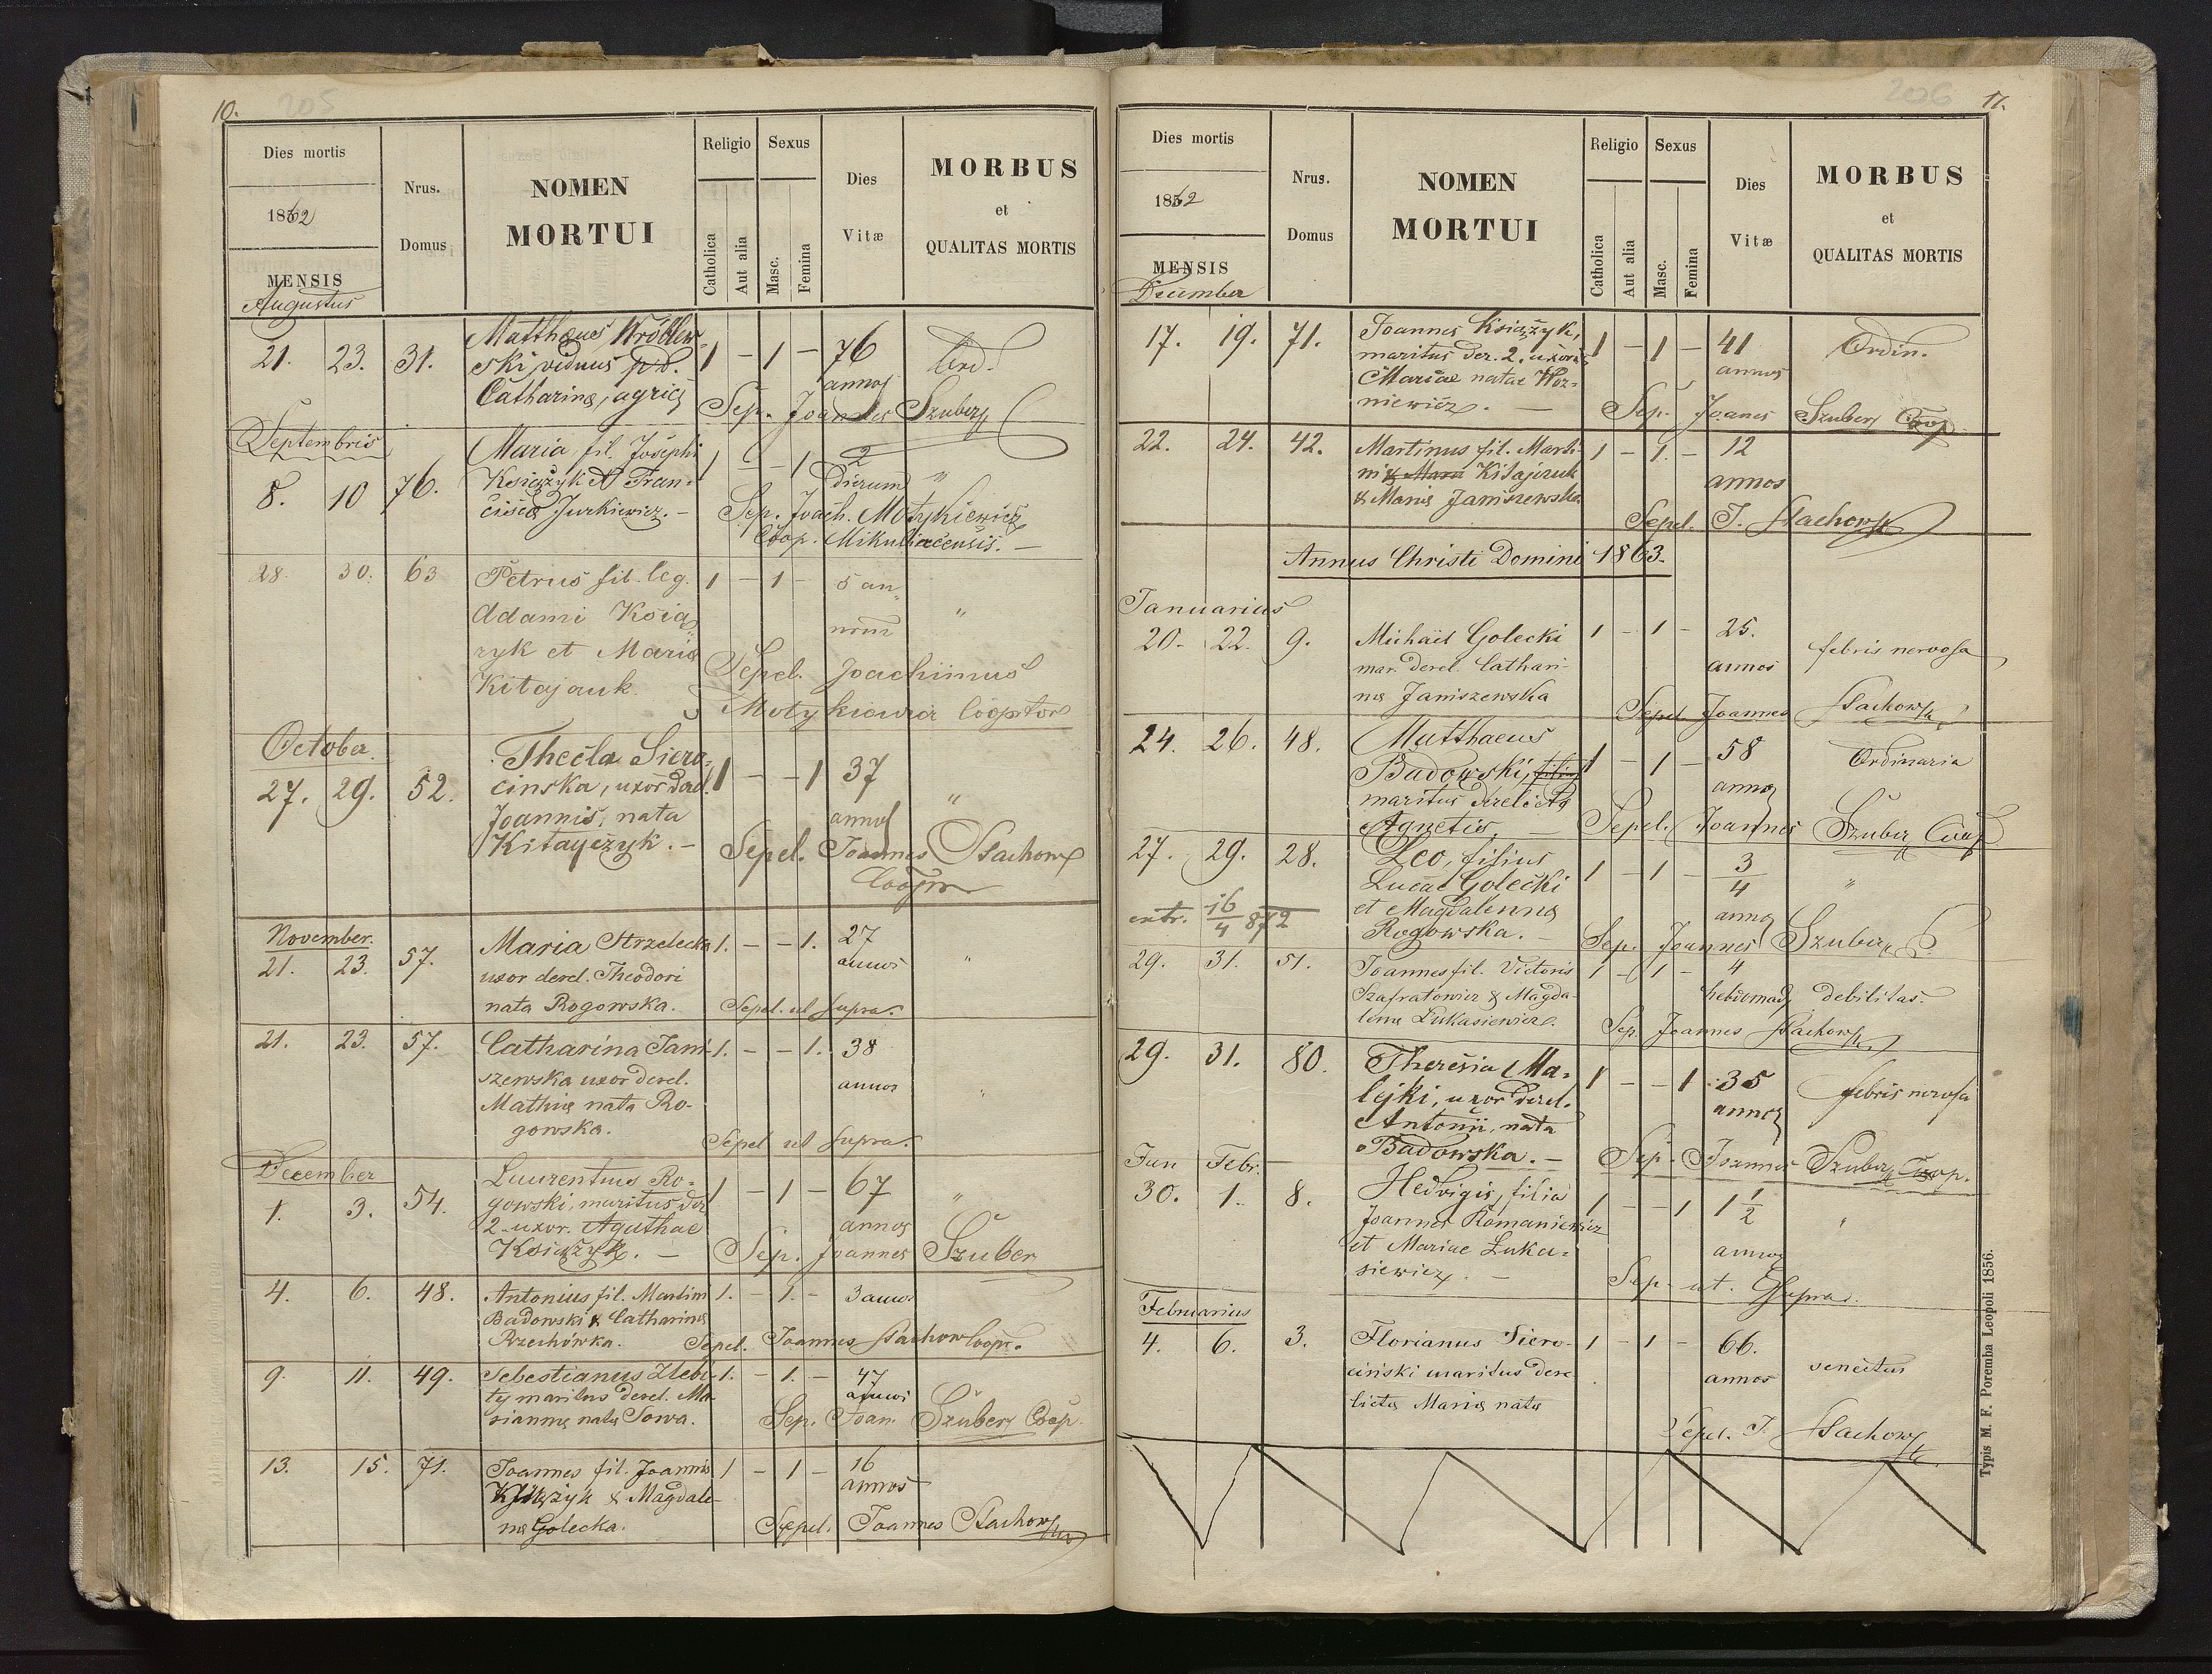 10.
205
Dies mortis
1862
MENSIS
Augustus
Nrus.
Domus
NOMEN
MORTUI
Religio
Sexus
Catholica
Aut alia
Masc.
Femina
Dies
Vitæ
MORBUS
et
QUALITAS MORTIS
21. 23. 31. Matthaeus Wróblew- 1 - 1 - 76 Ord.
ski, viduus p.d. annos
Catharinę, agric
Sep. Joannes Szuber
Septembris
8. 10 76. Maria fil. Josephi 1 - - 1 2 "
Książyk et Fran- Dierum
ciscę Jurkiewicz. -
Sep. Joach. Motykiewicz
Coop. Mikulincensis. -
28. 30. 63 Petrus fil. leg. 1 - 1 - 5 an "
Adami Ksią norum
zyk et Marię
Kitajczuk.
Sepel. Joachimus
Motykiewicz Cooptor
October
27. 29. 52. Thecla Siero- 1 - - 1 37 "
cinska, uxor derel. annos
Joannis, nata
Kitajczyk. -
Sepel. Joannes Stachow
Cooptor
November.
21. 23. 57. Maria Strzelecka 1. - - 1. 27 "
uxor derel. Theodori annos
nata Rogowska.
Sepel. ut supra.
21. 23. 57. Catharina Jani- 1. - - 1. 38 "
szewska uxor derel. annos
Mathię nata Ro-
gowska.
Sepel ut supra.
December
1. 3. 54. Laurentius Ro- 1 - 1 - 67 "
gowski, maritus der
2. uxor. Agathae annos
Książyk. -
Sep. Joannes Szuber
4. 6. 48. Antonius fil. Martini 1. - 1. - 3 annos "
Badowski & Catharinę
Orzechówka.
Sepel. Joannes Stachow Coop.
9. 11. 49. Sebestianus Zlebi- 1. - 1. - 47
ty maritus derel. Ma- annos
riannę natę Sowa.
Sep. Joan. Szuber Coop.
13. 15. 71. Joannes fil. Joannis 1 - 1 - 16
Książyk & Magdale- annos
nę Golecka.
Sepel. Joannes Stachow
206
11.
Dies mortis
1862
MENSIS
December
Nrus.
Domus
NOMEN
MORTUI
Religio
Sexus
Catholica
Aut alia
Masc.
Femina
Dies
Vitæ
MORBUS
et
QUALITAS MORTIS
17. 19. 71. Joannes Książyk, 1 - 1 - 41 Ordin.
maritus der. 2. uxoris annos
Mariae natae Woz-
niewicz. -
Sep. Joanes Szuber Coop
22. 24. 42. Martinus fil. Marti- 1 - 1. - 12
ni & Mara Kitajczuk annos
& Marię Janiszewska
Sepel. J. Stachow
Annus Christi Domini 1863.
Januarius
20. 22. 9. Michaël Golecki 1 - 1 - 25. febris nervosa
mar. derel. Cathari- annos
nę Janiszewska
Sepel Joannes Stachow
24. 26. 48. Matthaeus 1 - 1 - 58 Ordinaria
Badowski, filius annos
maritus derelictę
Agnetis. -
Sepel. Joannes Szuber Coop
27. 29. 28. Leo, filius 1 - 1 - 3/4 "
Lucae Golecki annos
et Magdalennę
Rogowska. -
extr. 16/4 872
Sep. Joannes Szuber
29. 31. 51. Joannes fil. Victoris 1 - 1 - 4
Szafratowicz & Magda- hebdomad debilitas.
lenę Łukasiewicz.
Sep. Joannes Stachow
29. 31. 80. Theresia Ma- 1 - - 1 35 febris nervosa
lejki, uxor derel. annos
Antonii, nata
Badowska. -
Sep. Joannes Szuber Coop.
Jan Febr.
30. 1. 8. Hedvigis, filia 1 - - 1 1 1/2 "
Joannes Romaniewicz annos
et Mariae Łuka-
siewicz. -
Sep. ut. Supra.
Februarius
4. 6. 3. Florianus Siero- 1 - 1 - 66. senectus
ciński maritus dere annos
lictę Marię natę
Sepel. J. Stachow
Typis M. F. Poremba Leopoli 1856.